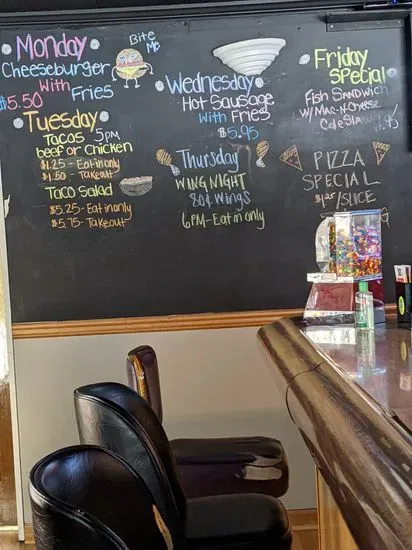 Monday
Bite Me
Cheeseburger
With
$5.50 Fries
Tuesday
Tacos 5pm
beef or Chicken
$1.25 - Eat in only
$1.50 - Takeout
Taco Salad
$5.25 - Eat in only
$5.75 - Takeout
Wednesday
Hot Sausage
With Fries
$5.95
Thursday
WING NIGHT
80¢ Wings
6PM - Eat in only
Friday
Special
Fish Sandwich
w/ Mac-n-Cheese
Cole Slaw
PIZZA
SPECIAL
/SLICE